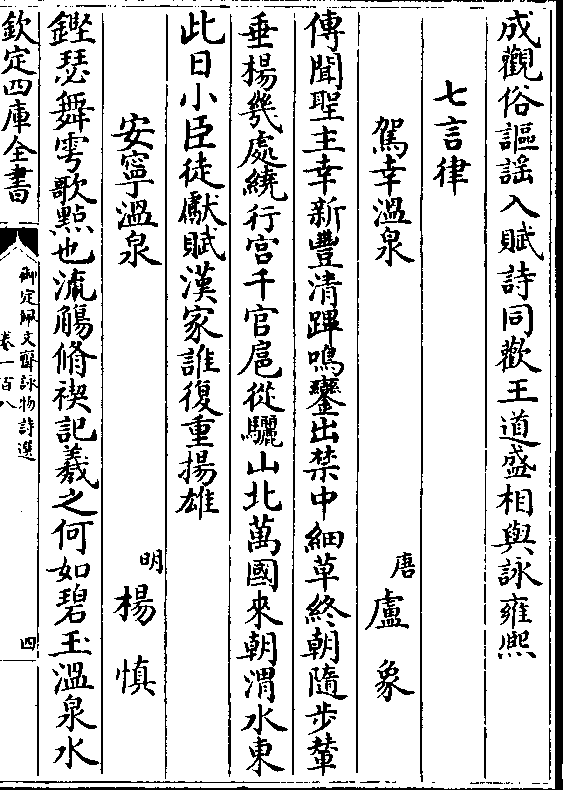 成觀俗謳謡入賦詩同歡王道盛相與詠雍熙
七言律
駕幸溫泉
唐 盧象
傳聞聖主幸新豐清蹕鳴鑾出禁中細草終朝隨步輦
垂楊幾處繞行宮千官扈從驪山北萬國來朝渭水東
此日小臣徒獻賦漢家誰復重揚雄
安寧溫泉
明 楊慎
鏗瑟舞雩歌點也流觴脩禊記羲之何如碧玉溫泉水
欽定四庫全書
御定佩文齋詠物詩選
卷一百八
四